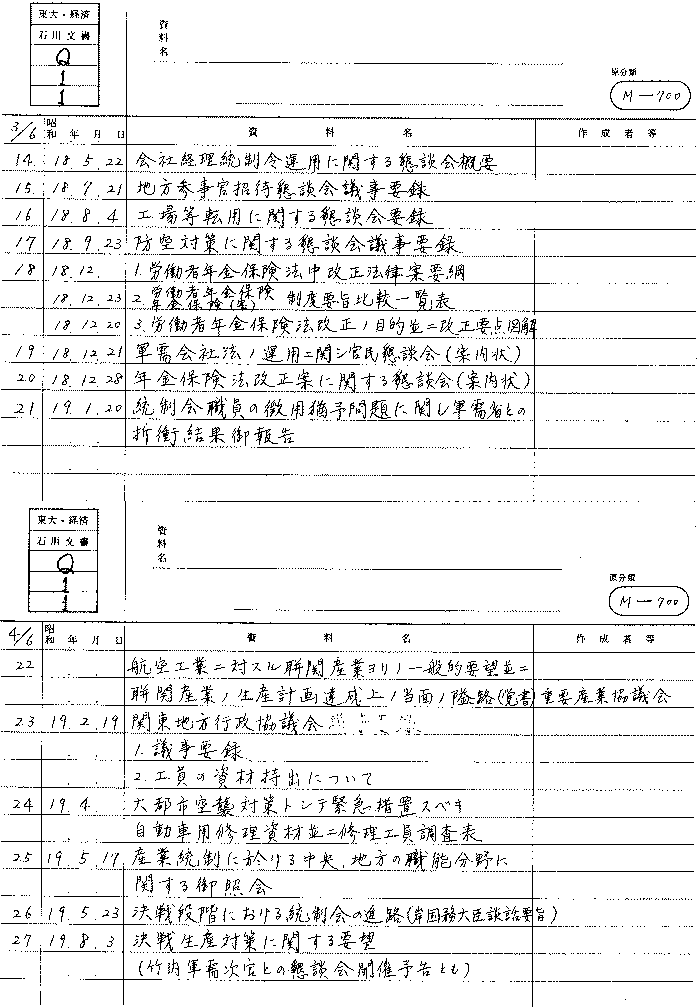 東大・経済
石川文書
Q
1
1
資料名
原分類
M-700
3/6 昭和 年 月 日 資料名 作成者等
14 18.5.22 会社経理統制令運用に関する懇談会概要
15 18.7.21 地方参事官招待懇談会議事要録
16 18.8.4 工場等転用に関する懇談会要録
17 18.9.23 防空対策に関する懇談会議事要録
18 18.12. 1.労働者年金保険法中改正法律案要綱
18.12.23 2.労働者年金保険 年金保険(案) 制度要旨比較一覧表
18.12.20 3.労働者年金保険法改正ノ目的並ニ改正要点図解
19 18.12.21 軍需会社法ノ運用ニ関シ官民懇談会(案内状)
20 18.12.28 年金保険法改正案に関する懇談会(案内状)
21 19.1.20 統制会職員の徴用猶予問題に関し軍需省との
折衝結果御報告
東大・経済
石川文書
Q
1
1
資料名
原分類
M-700
4/6 昭和 年 月 日 資料名 作成者等
22 航空工業ニ対スル聯関産業ヨリノ一般的要望並ニ
聯関産業ノ生産計画達成上ノ当面ノ隘路(覚書) 重要産業協議会
23 19.2.19 関東地方行政協議会
1.議事要録
2.工員の資材持出について
24 19.4. 大都市空襲対策トシテ緊急措置スベキ
自動車用修理資材並ニ修理工員調査表
25 19.5.17 産業統制に於ける中央、地方の職能分野に
関する御照会
26 19.5.23 決戦段階における統制会の進路(岸国務大臣談話要旨)
27 19.8.3 決戦生産対策に関する要望
(竹内軍需次官との懇談会開催予告とも)